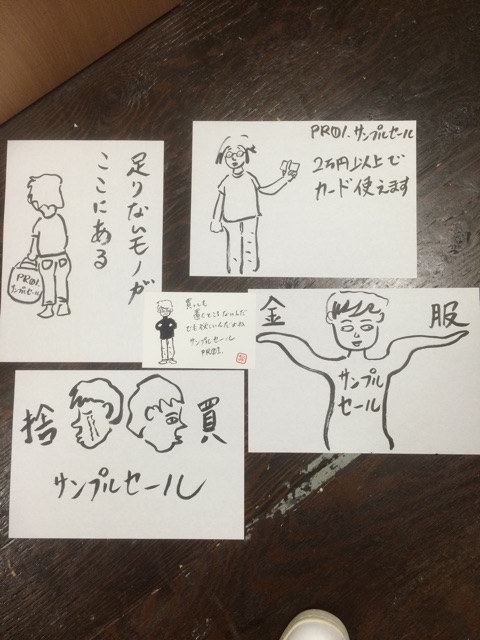 足りないモノが
ここにある
PR01.
サンプルセール
PR01.サンプルセール
2万円以上で
カード使えます
買っても
置くところないんだ
でも欲しいんだよね
サンプルセール
PR01.
金
服
サンプル
セール
捨
買
サンプルセール